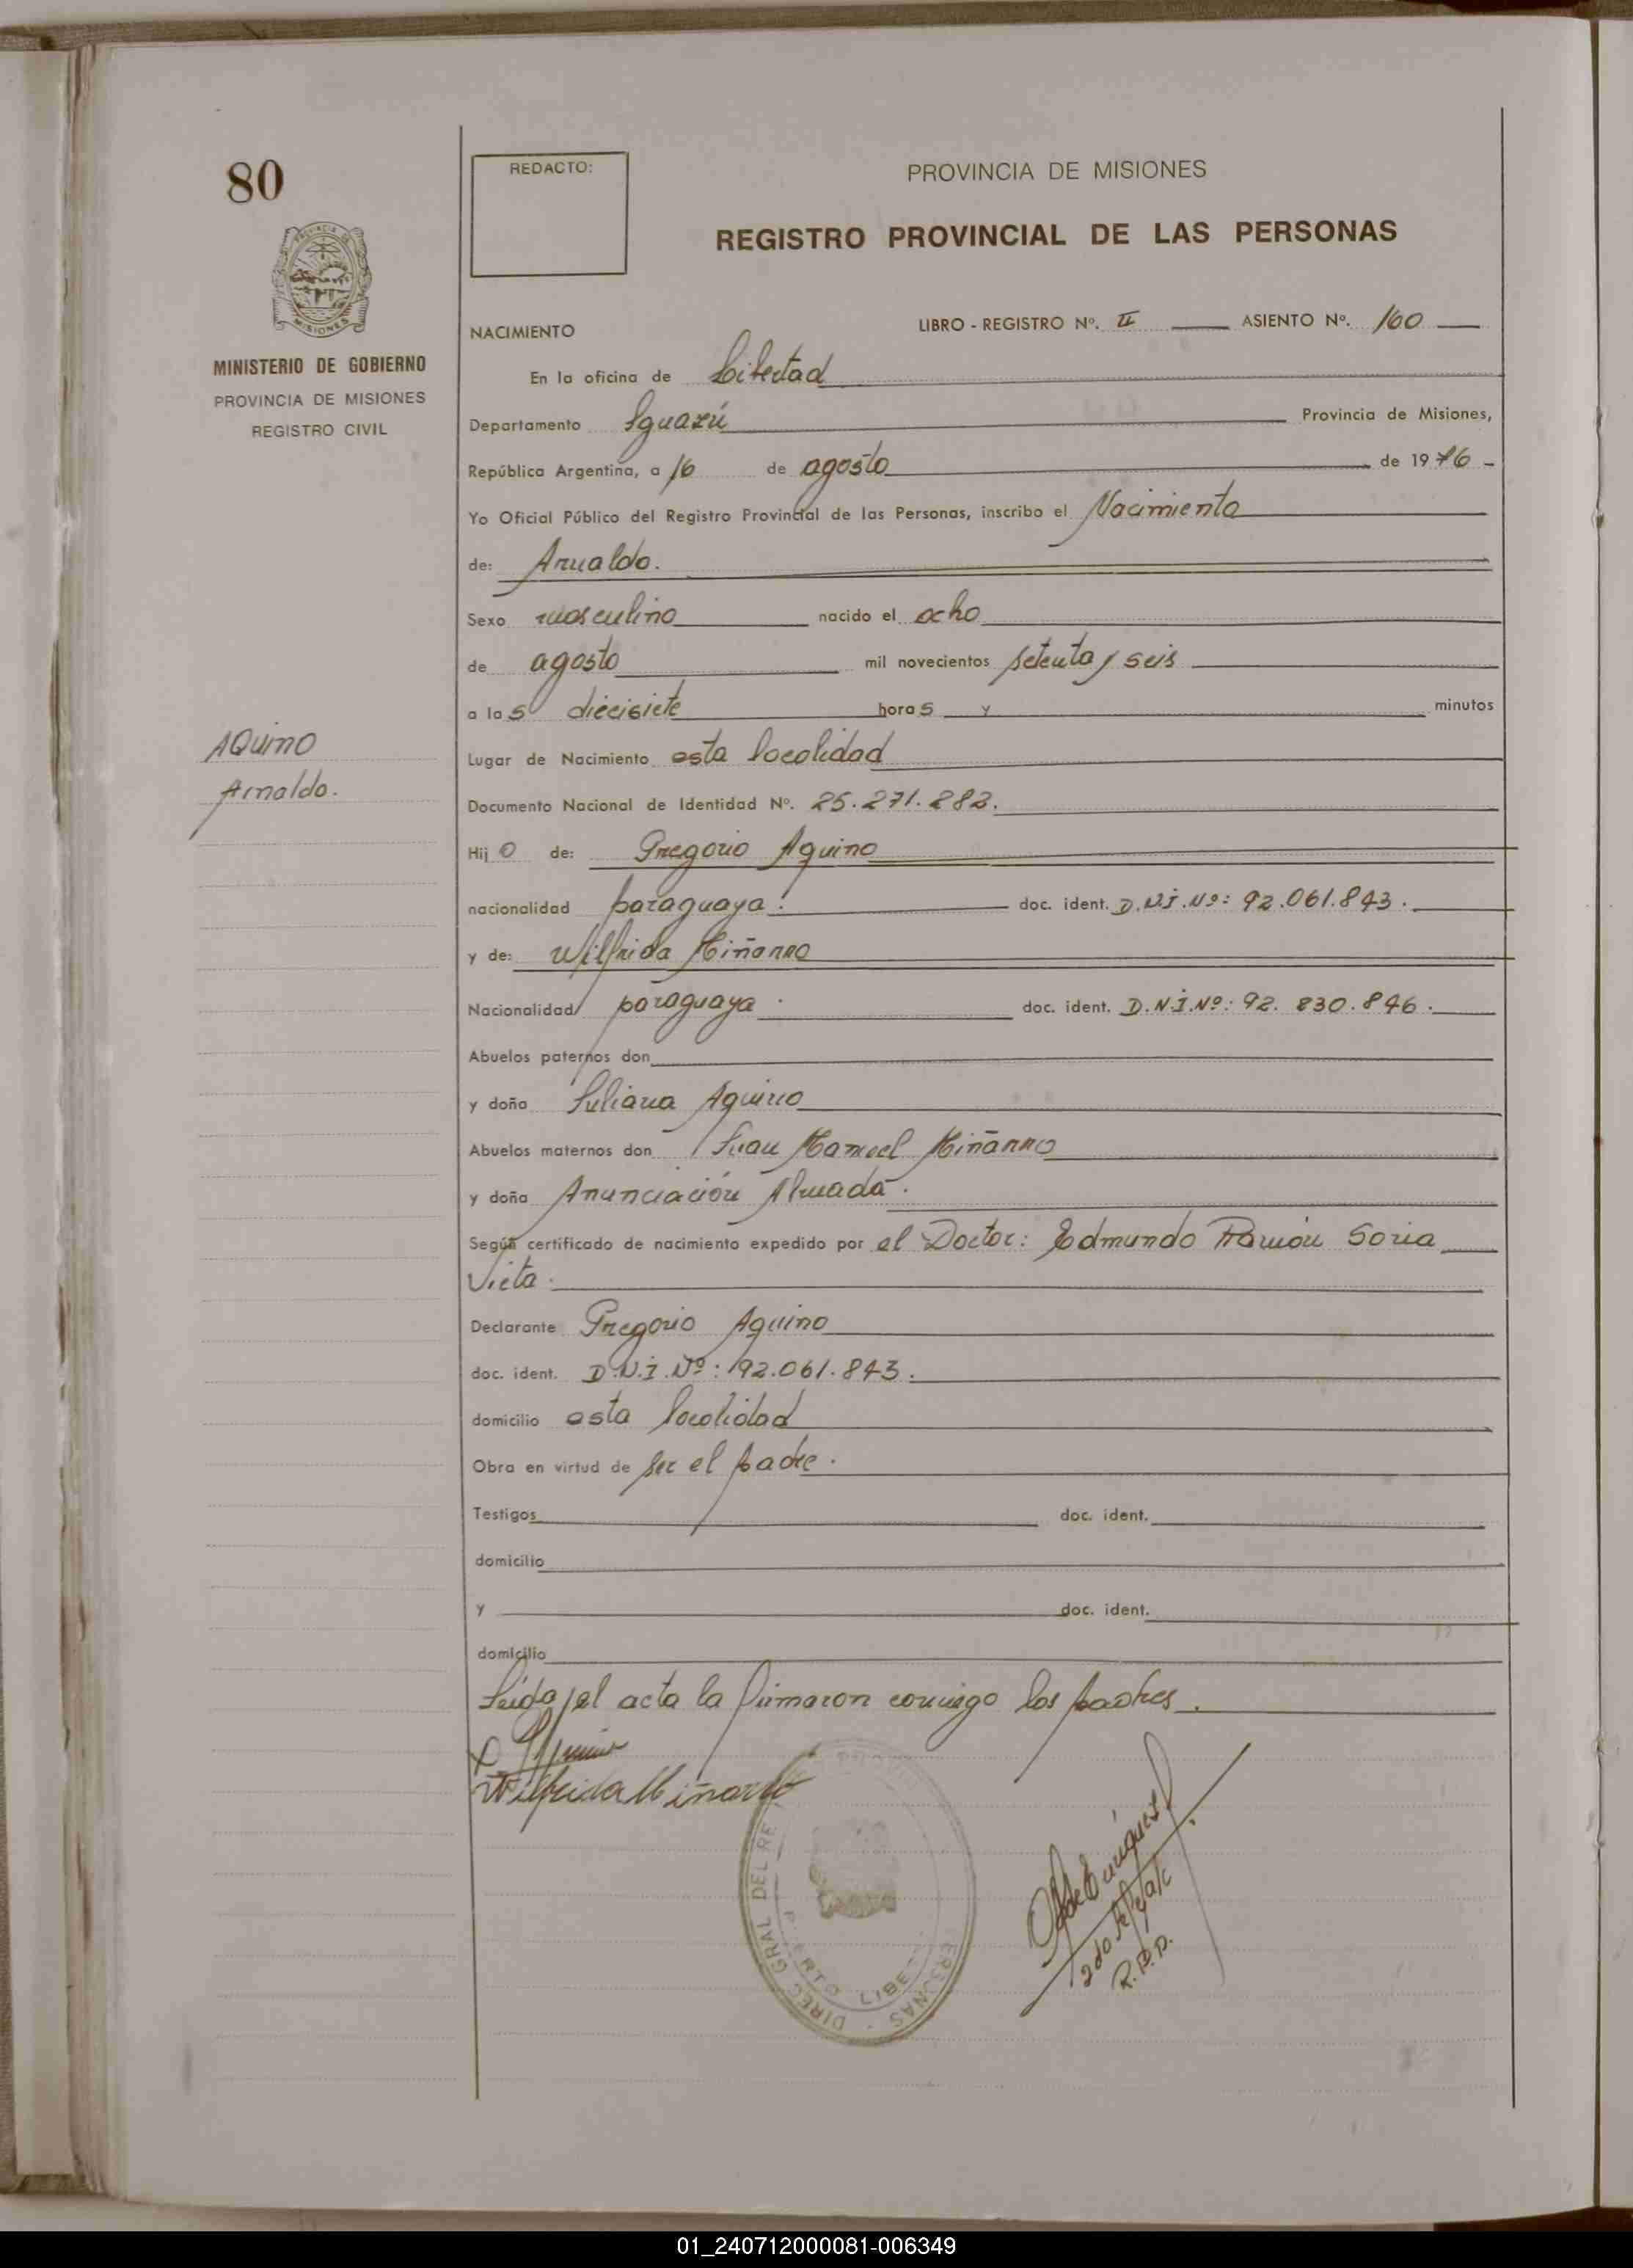 80
REDACTO:
PROVINCIA DE MISIONES
REGISTRO PROVINCIAL DE LAS PERSONAS
MISIONES
MINISTERIO DE GOBIERNO
PROVINCIA DE MISIONES
REGISTRO CIVIL
NACIMIENTO
LIBRO - REGISTRO Nº. II ASIENTO Nº. 160
En la oficina de Libertad
Departamento Iguazú Provincia de Misiones,
República Argentina, a 16 de agosto de 1976 -
Yo Oficial Público del Registro Provincial de las Personas, inscribo el Nacimiento
de: Arnaldo.
Sexo masculino nacido el ocho
de agosto mil novecientos setenta y seis
a las diecisiete horas y minutos
Lugar de Nacimiento esta localidad
AQuino
Arnaldo.
Documento Nacional de Identidad Nº. 25.271.282.
Hijo de: Gregorio Aquino
nacionalidad paraguaya. doc. ident. D.N.I.Nº: 92.061.843.
y de: Wilfrida Miñarro
Nacionalidad paraguaya. doc. ident. D.N.I.Nº: 92.830.846.
Abuelos paternos don
y doña Juliana Aquino
Abuelos maternos don Juan Manuel Miñarro
y doña Anunciación Almada.
Según certificado de nacimiento expedido por el Doctor: Edmundo Ramón Soria
Vieta.
Declarante Gregorio Aquino
doc. ident. D.N.I.Nº: 92.061.843.
domicilio esta localidad
Obra en virtud de ser el padre.
Testigos doc. ident.
domicilio
y doc. ident.
domicilio
Leida el acta la firmaron conmigo los padres.
Wilfrida Miñarro
DIREC GRAL DEL RE
ERSONAS
R.P.P.
01_240712000081-006349